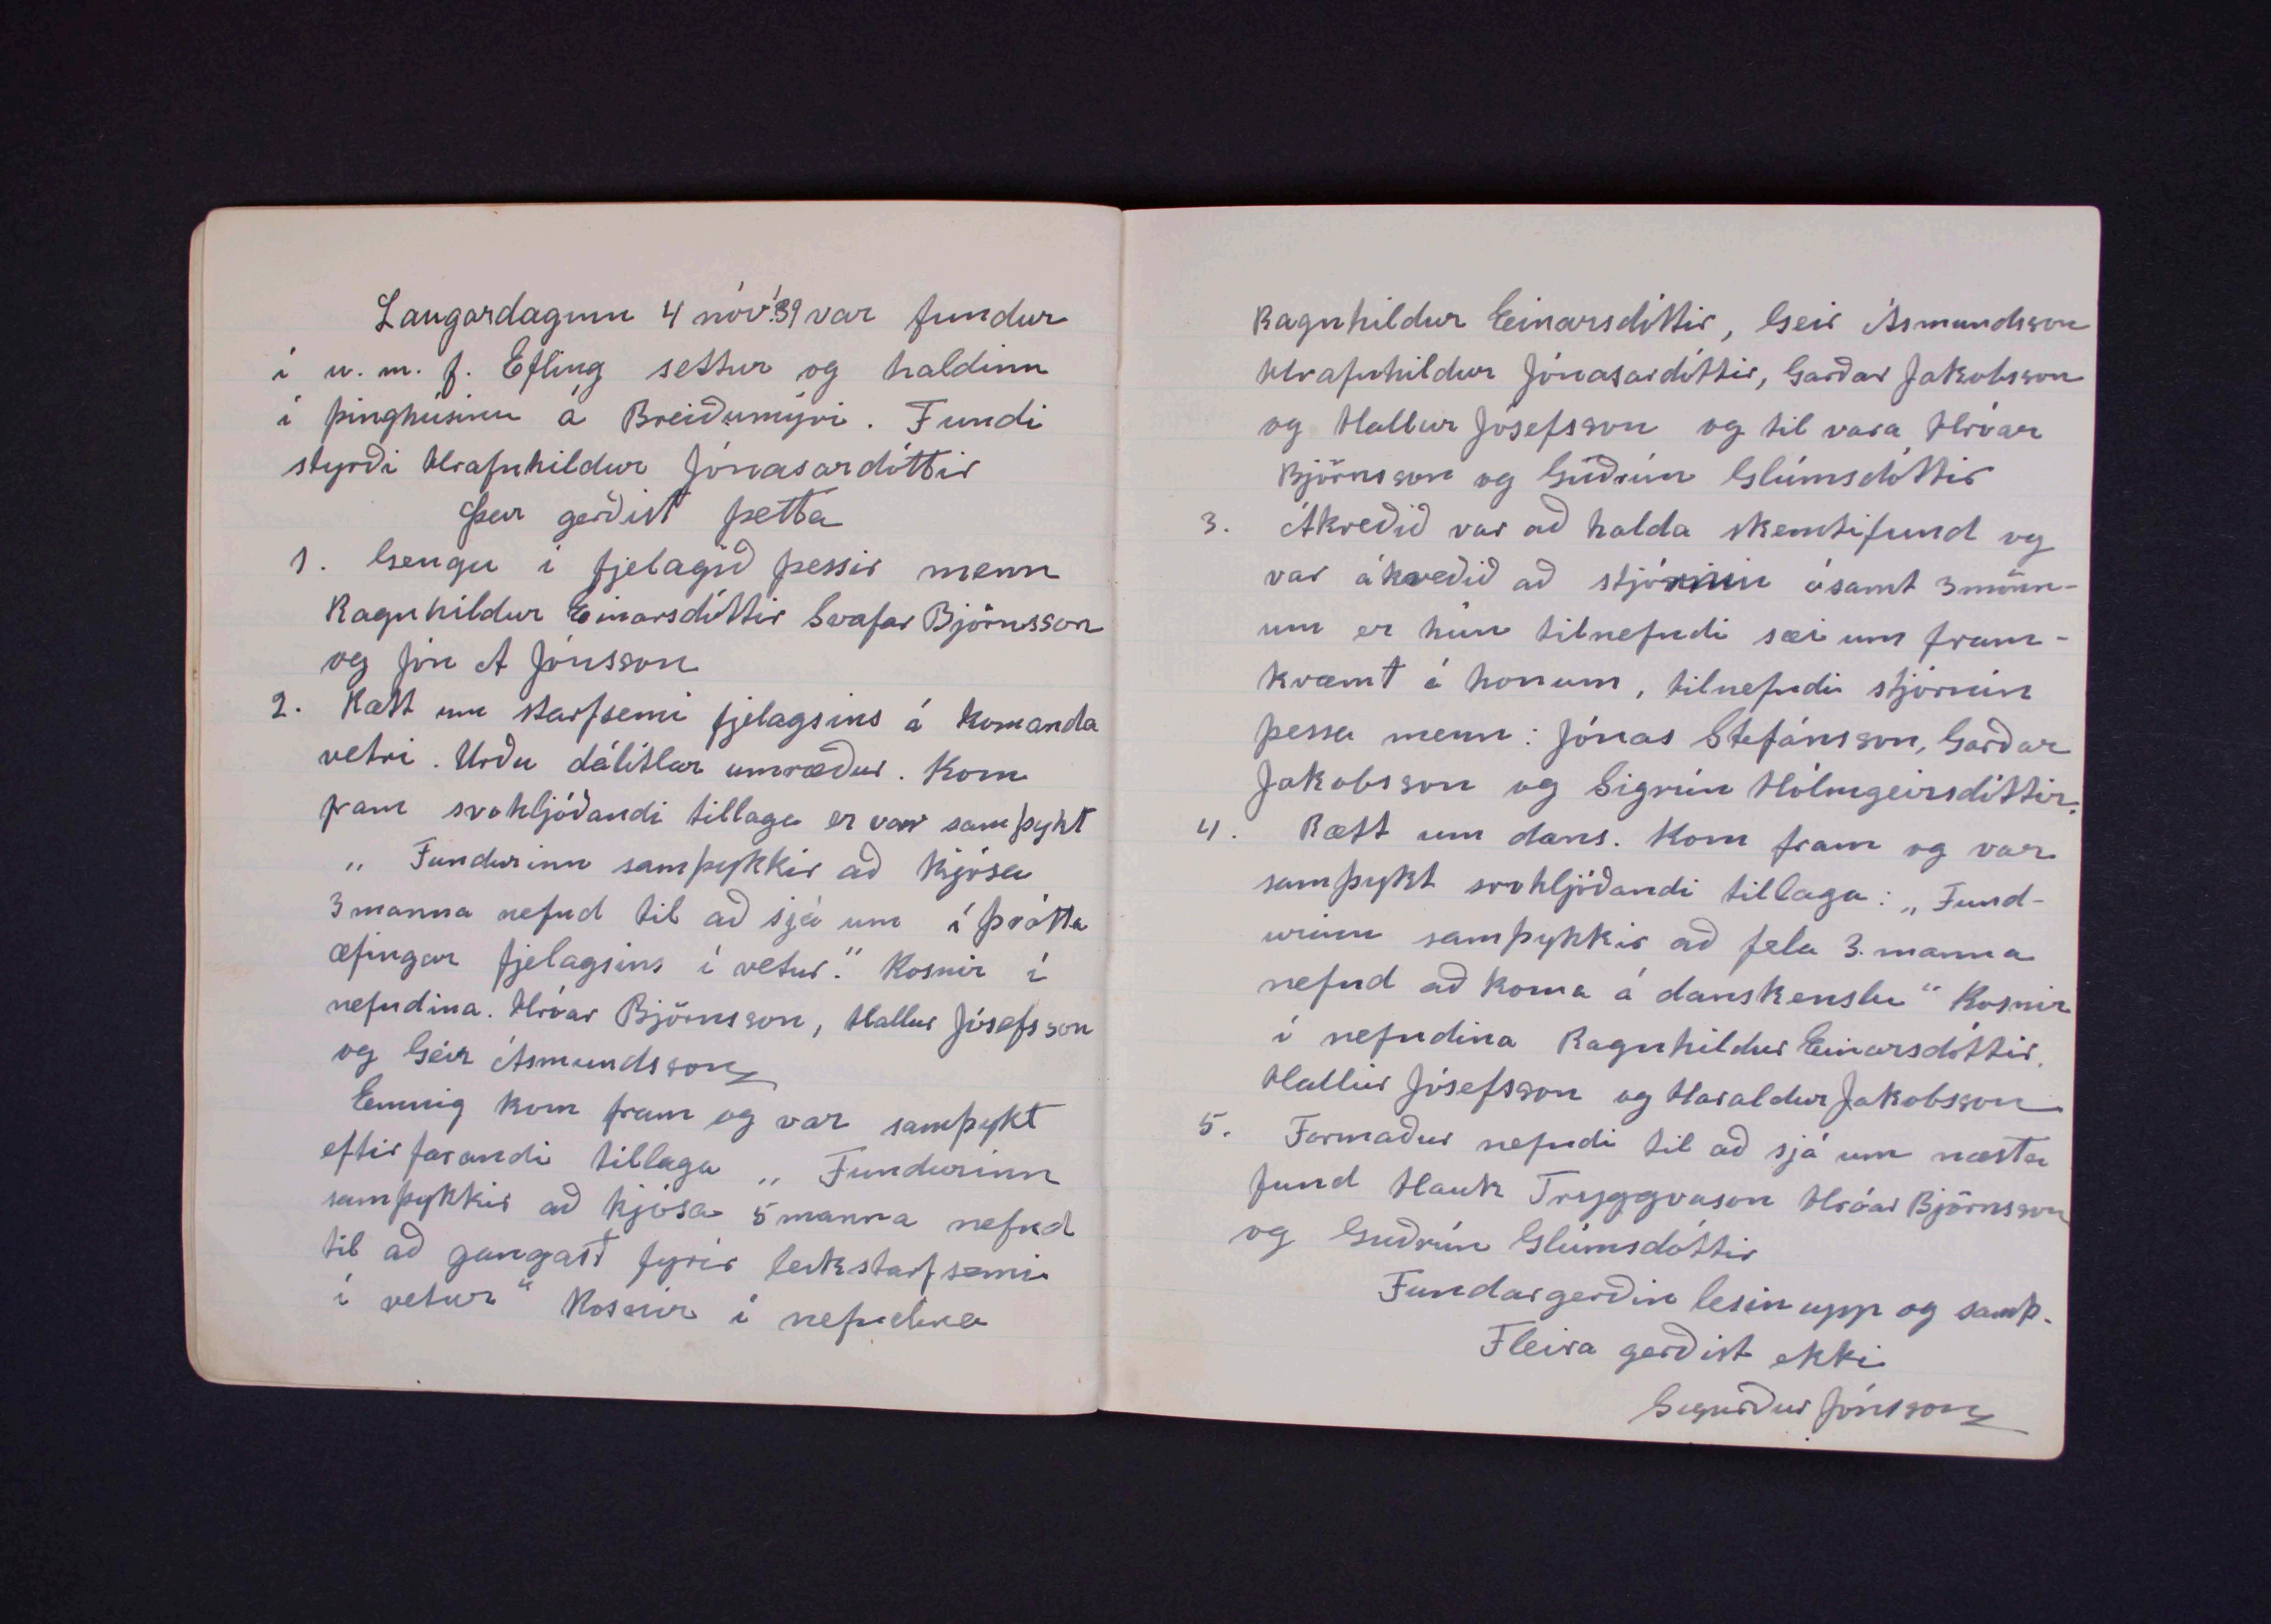 Laugardaginn 4 nóv.'39 var fundur
í u. m. f. Efling settur og haldinn
í þinghúsinu á Breiðumýri. Fundi
styrði Hrafnhildur Jónasardóttir
Þar gerðist þetta
1. Gengu í fjelagið þessir menn
Ragnhildur Einarsdóttir Svafar Björnsson
og Jón A Jónsson
2. Rætt um starfsemi fjelagsins á komanda
vetri. Urðu dálitlar umræður. Kom
fram svohljóðandi tillaga er var samþykt
„ Fundurinn samþykkir að kjósa
3 manna nefnd til að sjá um íþrótta
æfingar fjelagsins í vetur." Kosnir í
nefndina. Hróar Björnsson, Hallur Jósefsson
og Geir Ásmundsson
Ennig kom fram og var samþykt
eftirfarandi tillaga „ Fundurinn
samþykkir að kjósa 5 manna nefnd
til að gangast fyrir leikstarfsemi
í vetur" Kosnir í nefndina
Ragnhildur Einarsdóttir, Geir Ásmundsson
Hrafnhildur Jónasardóttir, Garðar Jakobsson
og Hallur Jósefsson og til vara Hróar
Björnsson og Guðrún Glúmsdóttir
3. Ákveðið var að halda skemtifund og
var ákveðið að stjórnin ásamt 3 mönn-
um er hún tilnefndi sæi um fram-
kvæmt á honum, tilnefndi stjórnin
þessa menn: Jónas Stefánsson, Garðar
Jakobsson og Sigrún Hólmgeirsdóttir.
4. Rætt um dans. Kom fram og var
samþykt svohljóðandi tillaga: „Fund-
urinn samþykkir að fela 3. manna
nefnd að koma á danskenslu" Kosnir
í nefndina Ragnhildur Einarsdóttir.
Hallur Jósefsson og Haraldur Jakobsson
5. Formaður nefndi til að sjá um næsta
fund Hauk Tryggvason Hróar Björnsson
og Guðrún Glúmsdóttir
Fundargerðin lesin upp og samþ.
Fleira gerðist ekki
Sigurður Jónsson